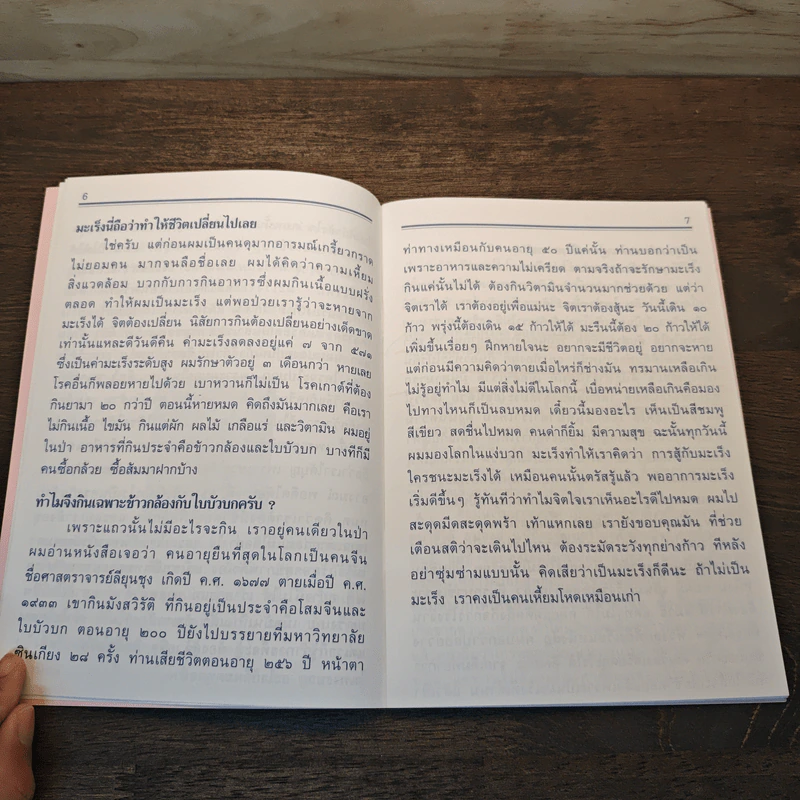 6
มะเร็งนี่ถือว่าทำให้ชีวิตเปลี่ยนไปเลย
ใช่ครับ แต่ก่อนผมเป็นคนดุมากอารมณ์เกรี้ยวกราด
ไม่ยอมคน มากจนลือชื่อเลย ผมได้คิดว่าความเหี้ยม
สิ่งแวดล้อม บวกกับการกินอาหารซึ่งผมกินเนื้อแบบฝรั่ง
ตลอด ทำให้ผมเป็นมะเร็ง แต่พอป่วยเรารู้ว่าจะหายจาก
มะเร็งได้ จิตต้องเปลี่ยน นิสัยการกินต้องเปลี่ยนอย่างเด็ดขาด
เท่านั้นแหละดีวันดีคืน ค่ามะเร็งลดลงอยู่แค่ ๗ จาก ๕๗๑
ซึ่งเป็นค่ามะเร็งระดับสูง ผมรักษาตัวอยู่ ๓ เดือนกว่า หายเลย
โรคอื่นก็พลอยหายไปด้วย เบาหวานก็ไม่เป็น โรคเกาต์ที่ต้อง
กินยามา ๒๐ กว่าปี ตอนนี้หายหมด คิดถึงมันมากเลย คือเรา
ไม่กินเนื้อ ไขมัน กินแต่ผัก ผลไม้ เกลือแร่ และวิตามิน ผมอยู่
ในป่า อาหารที่กินประจำคือข้าวกล้องและใบบัวบก บางทีก็มี
คนซื้อกล้วย ซื้อส้มมาฝากบ้าง
ทำไมจึงกินเฉพาะข้าวกล้องกับใบบัวบกครับ ?
เพราะแถวนั้นไม่มีอะไรจะกิน เราอยู่คนเดียวในป่า
ผมอ่านหนังสือเจอว่า คนอายุยืนที่สุดในโลกเป็นคนจีน
ชื่อศาสตราจารย์ลียุนชุง เกิดปี ค.ศ. ๑๖๗๗ ตายเมื่อปี ค.ศ.
๑๙๓๓ เขากินมังสวิรัติ ที่กินอยู่เป็นประจำคือโสมจีนและ
ใบบัวบก ตอนอายุ ๒๐๐ ปียังไปบรรยายที่มหาวิทยาลัย
ซินเกียง ๒๘ ครั้ง ท่านเสียชีวิตตอนอายุ ๒๕๖ ปี หน้าตา
7
ท่าทางเหมือนกับคนอายุ ๕๐ ปีแค่นั้น ท่านบอกว่าเป็น
เพราะอาหารและความไม่เครียด ตามจริงถ้าจะรักษามะเร็ง
กินแค่นั้นไม่ได้ ต้องกินวิตามินจำนวนมากช่วยด้วย แต่ว่า
จิตเราได้ เราต้องอยู่เพื่อแม่นะ จิตเราต้องสู้นะ วันนี้เดิน ๑๐
ก้าว พรุ่งนี้ต้องเดิน ๑๕ ก้าวให้ได้ มะรืนนี้ต้อง ๒๐ ก้าวให้ได้
เพิ่มขึ้นเรื่อยๆ ฝึกหายใจนะ อยากจะมีชีวิตอยู่ อยากจะหาย
แต่ก่อนมีความคิดว่าตายเมื่อไหร่ก็ช่างมัน ทรมานเหลือเกิน
ไม่รู้อยู่ทำไม มีแต่สิ่งไม่ดีในโลกนี้ เบื่อหน่ายเหลือเกินคือมอง
ไปทางไหนก็เป็นลบหมด เดี๋ยวนี้มองอะไร เห็นเป็นสีชมพู
สีเขียว สดชื่นไปหมด คนด่าก็ยิ้ม มีความสุข ฉะนั้นทุกวันนี้
ผมมองโลกในแง่บวก มะเร็งทำให้เราคิดว่า การสู้กับมะเร็ง
ใครชนะมะเร็งได้ เหมือนคนนั้นตรัสรู้แล้ว พออาการมะเร็ง
เริ่มดีขึ้นๆ รู้ทันทีว่าทำไมจิตใจเราเห็นอะไรดีไปหมด ผมไป
สะดุดมีดสะดุดพร้า เท้าแหกเลย เรายังขอบคุณมัน ที่ช่วย
เตือนสติว่าจะเดินไปไหน ต้องระมัดระวังทุกย่างก้าว ทีหลัง
อย่าซุ่มซ่ามแบบนั้น คิดเสียว่าเป็นมะเร็งก็ดีนะ ถ้าไม่เป็น
มะเร็ง เราคงเป็นคนเหี้ยมโหดเหมือนเก่า